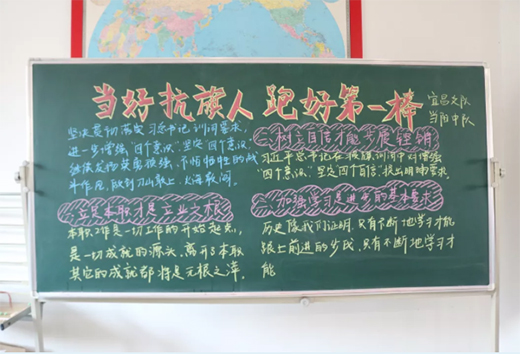 当好抗旗人 跑好第一棒
宜昌支队
当阳中队
坚决贯彻落实习近平书记训词要求，
进一步增强"四个意识"、坚定"四个意识"
继续发扬英勇顽强、不怕牺牲的战
斗作风，做到刀山敢上，火海敢闯。
立足本职才是立业之根
本职工作是一切工作的开始起点，
是一切成就的源头，离开了本职
其它的成就都将是无根之萍。
自信才能步履铿锵
习近平总书记在授旗训词中对增强
"四个意识"、"坚定四个自信"提出明确要求。
加强学习是进步的基本要求
历史像我们证明，只有不断地学习才能
跟上前进的步伐，只有不断地学习才
能